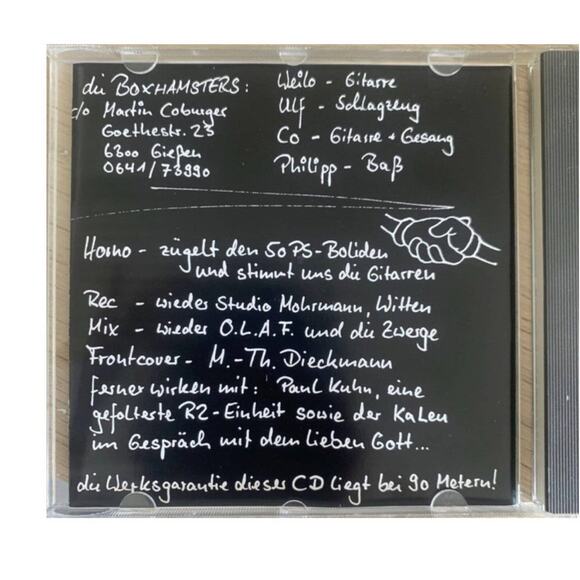 die BOXHAMSTERS:
c/o Martin Coburger
Goethestr. 23
6300 Gießen
0641/73990
Weilo - Gitarre
Ulf - Schlagzeug
Co - Gitarre + Gesang
Philipp - Baß
Homo - zügelt den 50 PS-Boliden
und stimmt uns die Gitarren
Rec - wieder Studio Mohrmann, Witten
Mix - wieder O.L.A.F. und die Zwerge
Frontcover - M.-Th. Dieckmann
ferner wirken mit: Paul Kuhn, eine
gefolterte R2-Einheit sowie der Kalen
im Gespräch mit dem lieben Gott...
die Werksgarantie dieser CD liegt bei 90 Metern!